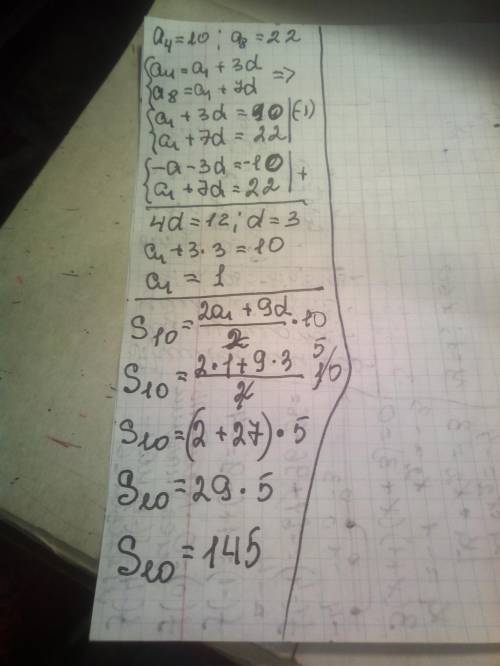 a₄=10; a₈=22
{a₄=a₁+3d =>
{a₈=a₁+7d
{a₁+3d=10 |(-1)
{a₁+7d=22 |
{-a-3d=-10 | +
{a₁+7d=22 |
4d=12; d=3
a₁+3·3=10
a₁=1
S₁₀=(2a₁+9d)/2·10
S₁₀=(2·1+9·3)/2 10 5
S₁₀=(2+27)·5
S₁₀=29·5
S₁₀=145